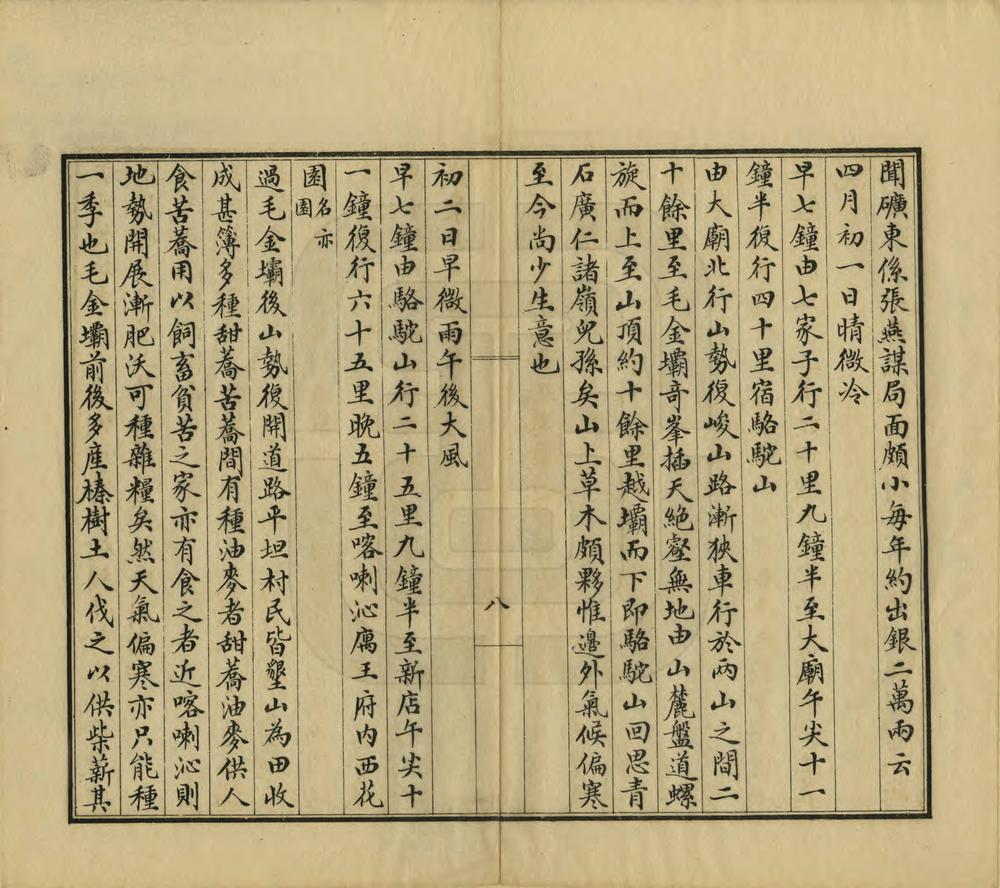 聞礦東係張燕謀局面頗小每年約出銀二萬兩云
四月初一日晴微冷
早七鐘由七家子行二十里九鐘半至大廟午尖十一
鐘半復行四十里宿駱駝山
由大廟北行山勢復峻山路漸狹車行於兩山之間二
十餘里至毛金壩奇峯插天絶壑無地由山麓盤道螺
旋而上至山頂約十餘里越壩而下即駱駝山回思青
石廣仁諸嶺兒孫矣山上草木頗夥惟邊外氣候偏寒
至今尚少生意也
八
初二日早微雨午後大風
早七鐘由駱駝山行二十五里九鐘半至新店午尖十
一鐘復行六十五里晚五鐘至喀喇沁寓王府内西花
園名亦園
過毛金壩後山勢復開道路平坦村民皆墾山為田收
成甚簿多種甜蕎苦蕎間有種油麥者甜蕎油麥供人
食苦蕎用以飼畜貧苦之家亦有食之者近喀喇沁則
地勢開展漸肥沃可種雜糧矣然天氣偏寒亦只能種
一季也毛金壩前後多產榛樹土人伐之以供柴薪其